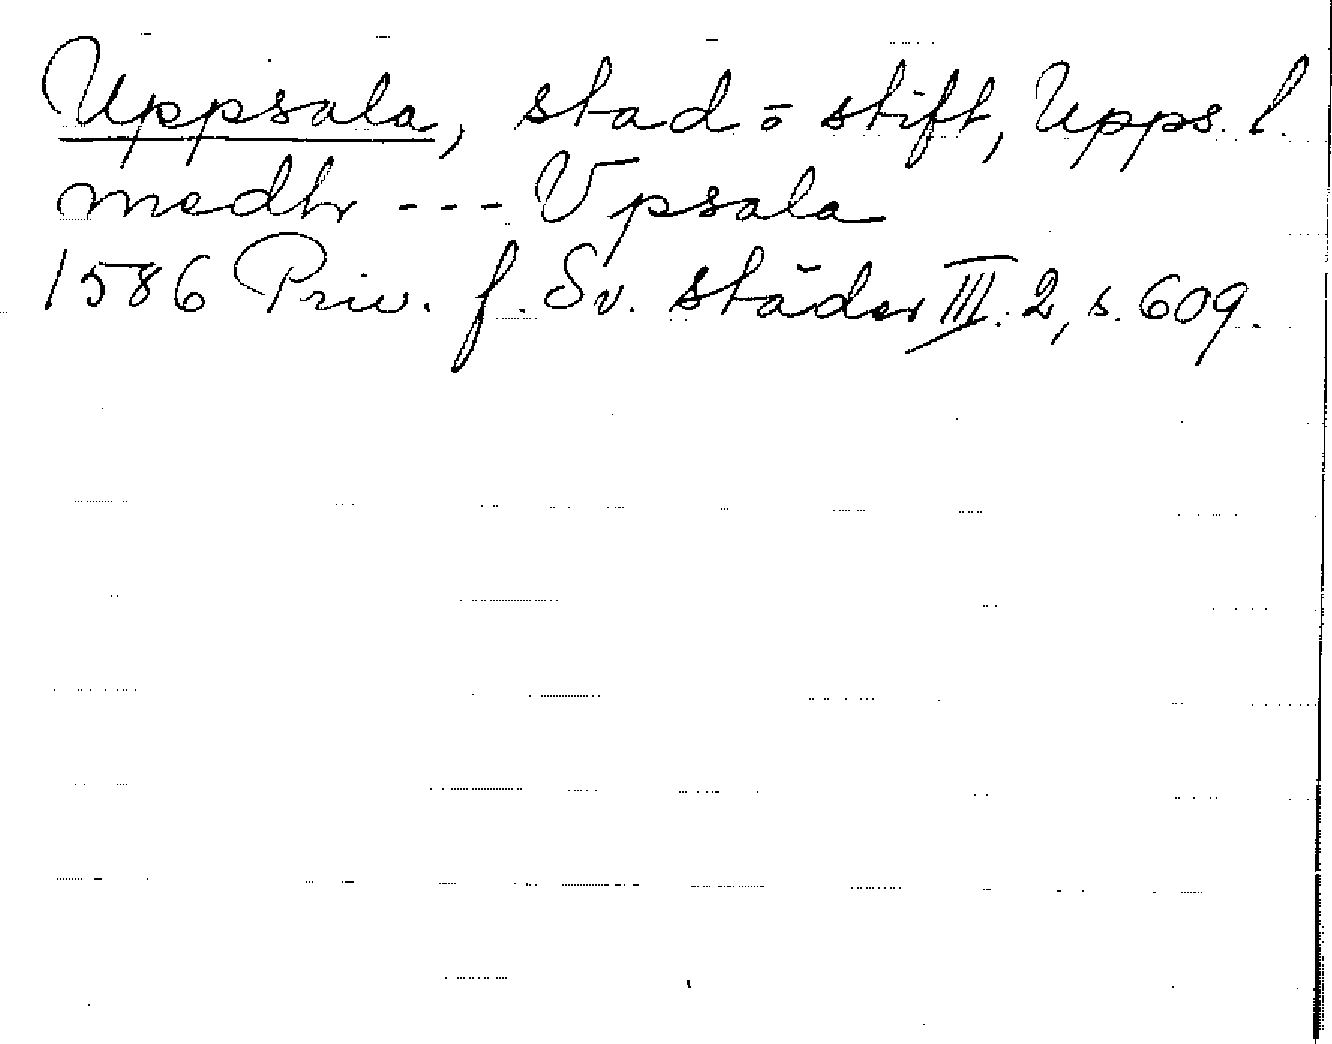 Uppsala, stad o stift, Upps. l.
medhr --- Vpsala
1586 Priv. f. Sv. städer III. 2, s. 609.